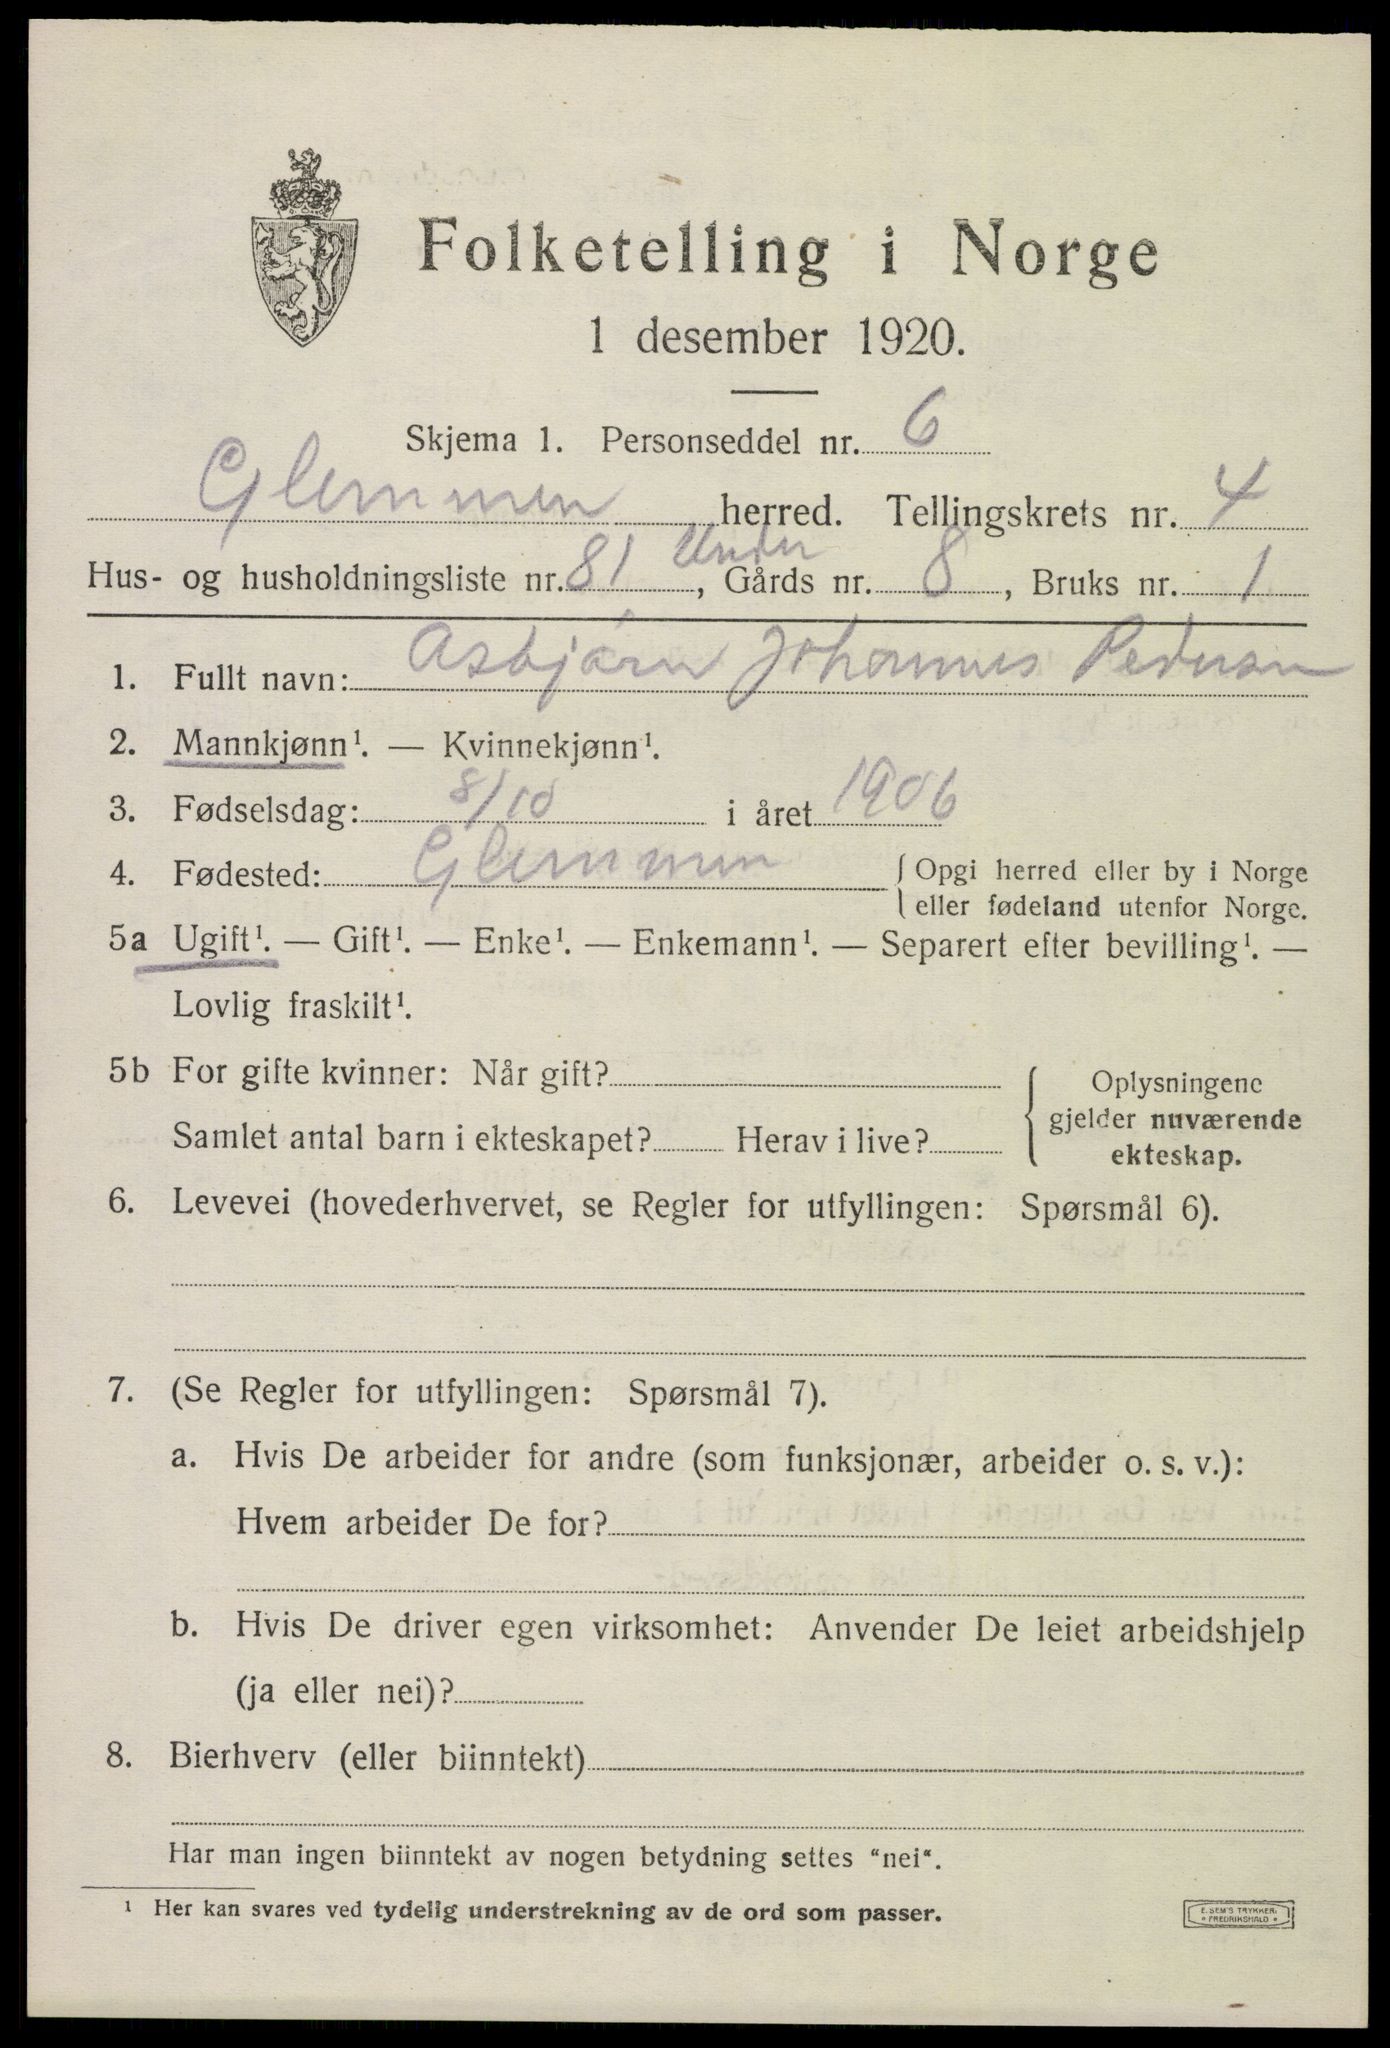 Folketelling i Norge
1 desember 1920.
Skjema 1. Personseddel nr. 6
Glemmen herred. Tellingskrets nr. 4
Hus- og husholdningsliste nr. 81 Under, Gårds nr. 8, Bruks nr. 1
1. Fullt navn: Asbjørn Johannes Pedersen
2. Mannkjønn¹. — Kvinnekjønn¹.
3. Fødselsdag: 8/10 i året 1906
4. Fødested: Glemmen {Opgi herred eller by i Norge
eller fødeland utenfor Norge.
5a Ugift¹. — Gift¹. — Enke¹. — Enkemann¹. — Separert efter bevilling¹. —
Lovlig fraskilt¹.
5b For gifte kvinner: Når gift? { Oplysningene
gjelder nuværende
Samlet antal barn i ekteskapet? Herav i live?
ekteskap.
6. Levevei (hovederhvervet, se Regler for utfyllingen: Spørsmål 6).
7. (Se Regler for utfyllingen: Spørsmål 7).
a. Hvis De arbeider for andre (som funksjonær, arbeider o. s. v.):
Hvem arbeider De for?
b. Hvis De driver egen virksomhet: Anvender De leiet arbeidshjelp
(ja eller nei)?
8. Bierhverv (eller biinntekt)
Har man ingen biinntekt av nogen betydning settes "nei".
¹ Her kan svares ved tydelig understrekning av de ord som passer.
E. SEM'S TRYKKERI
* FREDRIKSHALD *